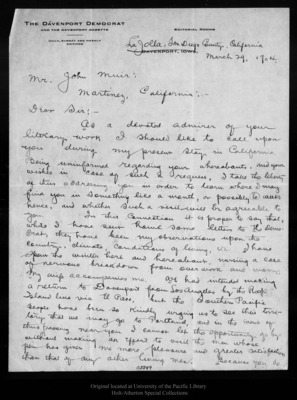 THE DAVENPORT DEMOCRAT
AND THE DAVENPORT GAZETTE
EDITORIAL ROOMS
La Jolla, San Diego County, California
DAVENPORT, IOWA
March 29, 1904.
Mr. John Muir:
Martinez, California:-
Dear Sir:-
As a devoted admirer of your
literary work I should like to call upon
you during my present stay in California
Being uninformed regarding your whereabouts, and your
wishes in case of such a request, I take the liberty
of thus addressing you in order to learn where I may
find you in something like a month, or possibly 6 weeks
hence, and whether such a visit would be agreeable to
you. In this connection it is proper to say that,
while I have sent home some letters to the Demo-
crat, they have been my observations upon the
country, climate conditions of living, &c. I have
spent the winter here and hereabouts, nursing a case
of nervous breakdown from overwork and worry.
My wife accompanies me. We had intended making
a return to Davenport from Los Angeles by the Rock
Island line via El Paso, but the Southern Pacific
people have been so kindly urging us to see their terri-
tory that we may go to Portland, and in the event of
thus passing near you I cannot let the opportunity go by
without making an effort to meet the man whose
pen has given me more pleasure and greater satisfaction
than that of any other living men. Because you do
03549
Original located at University of the Pacific Library
Holt-Atherton Special Collections